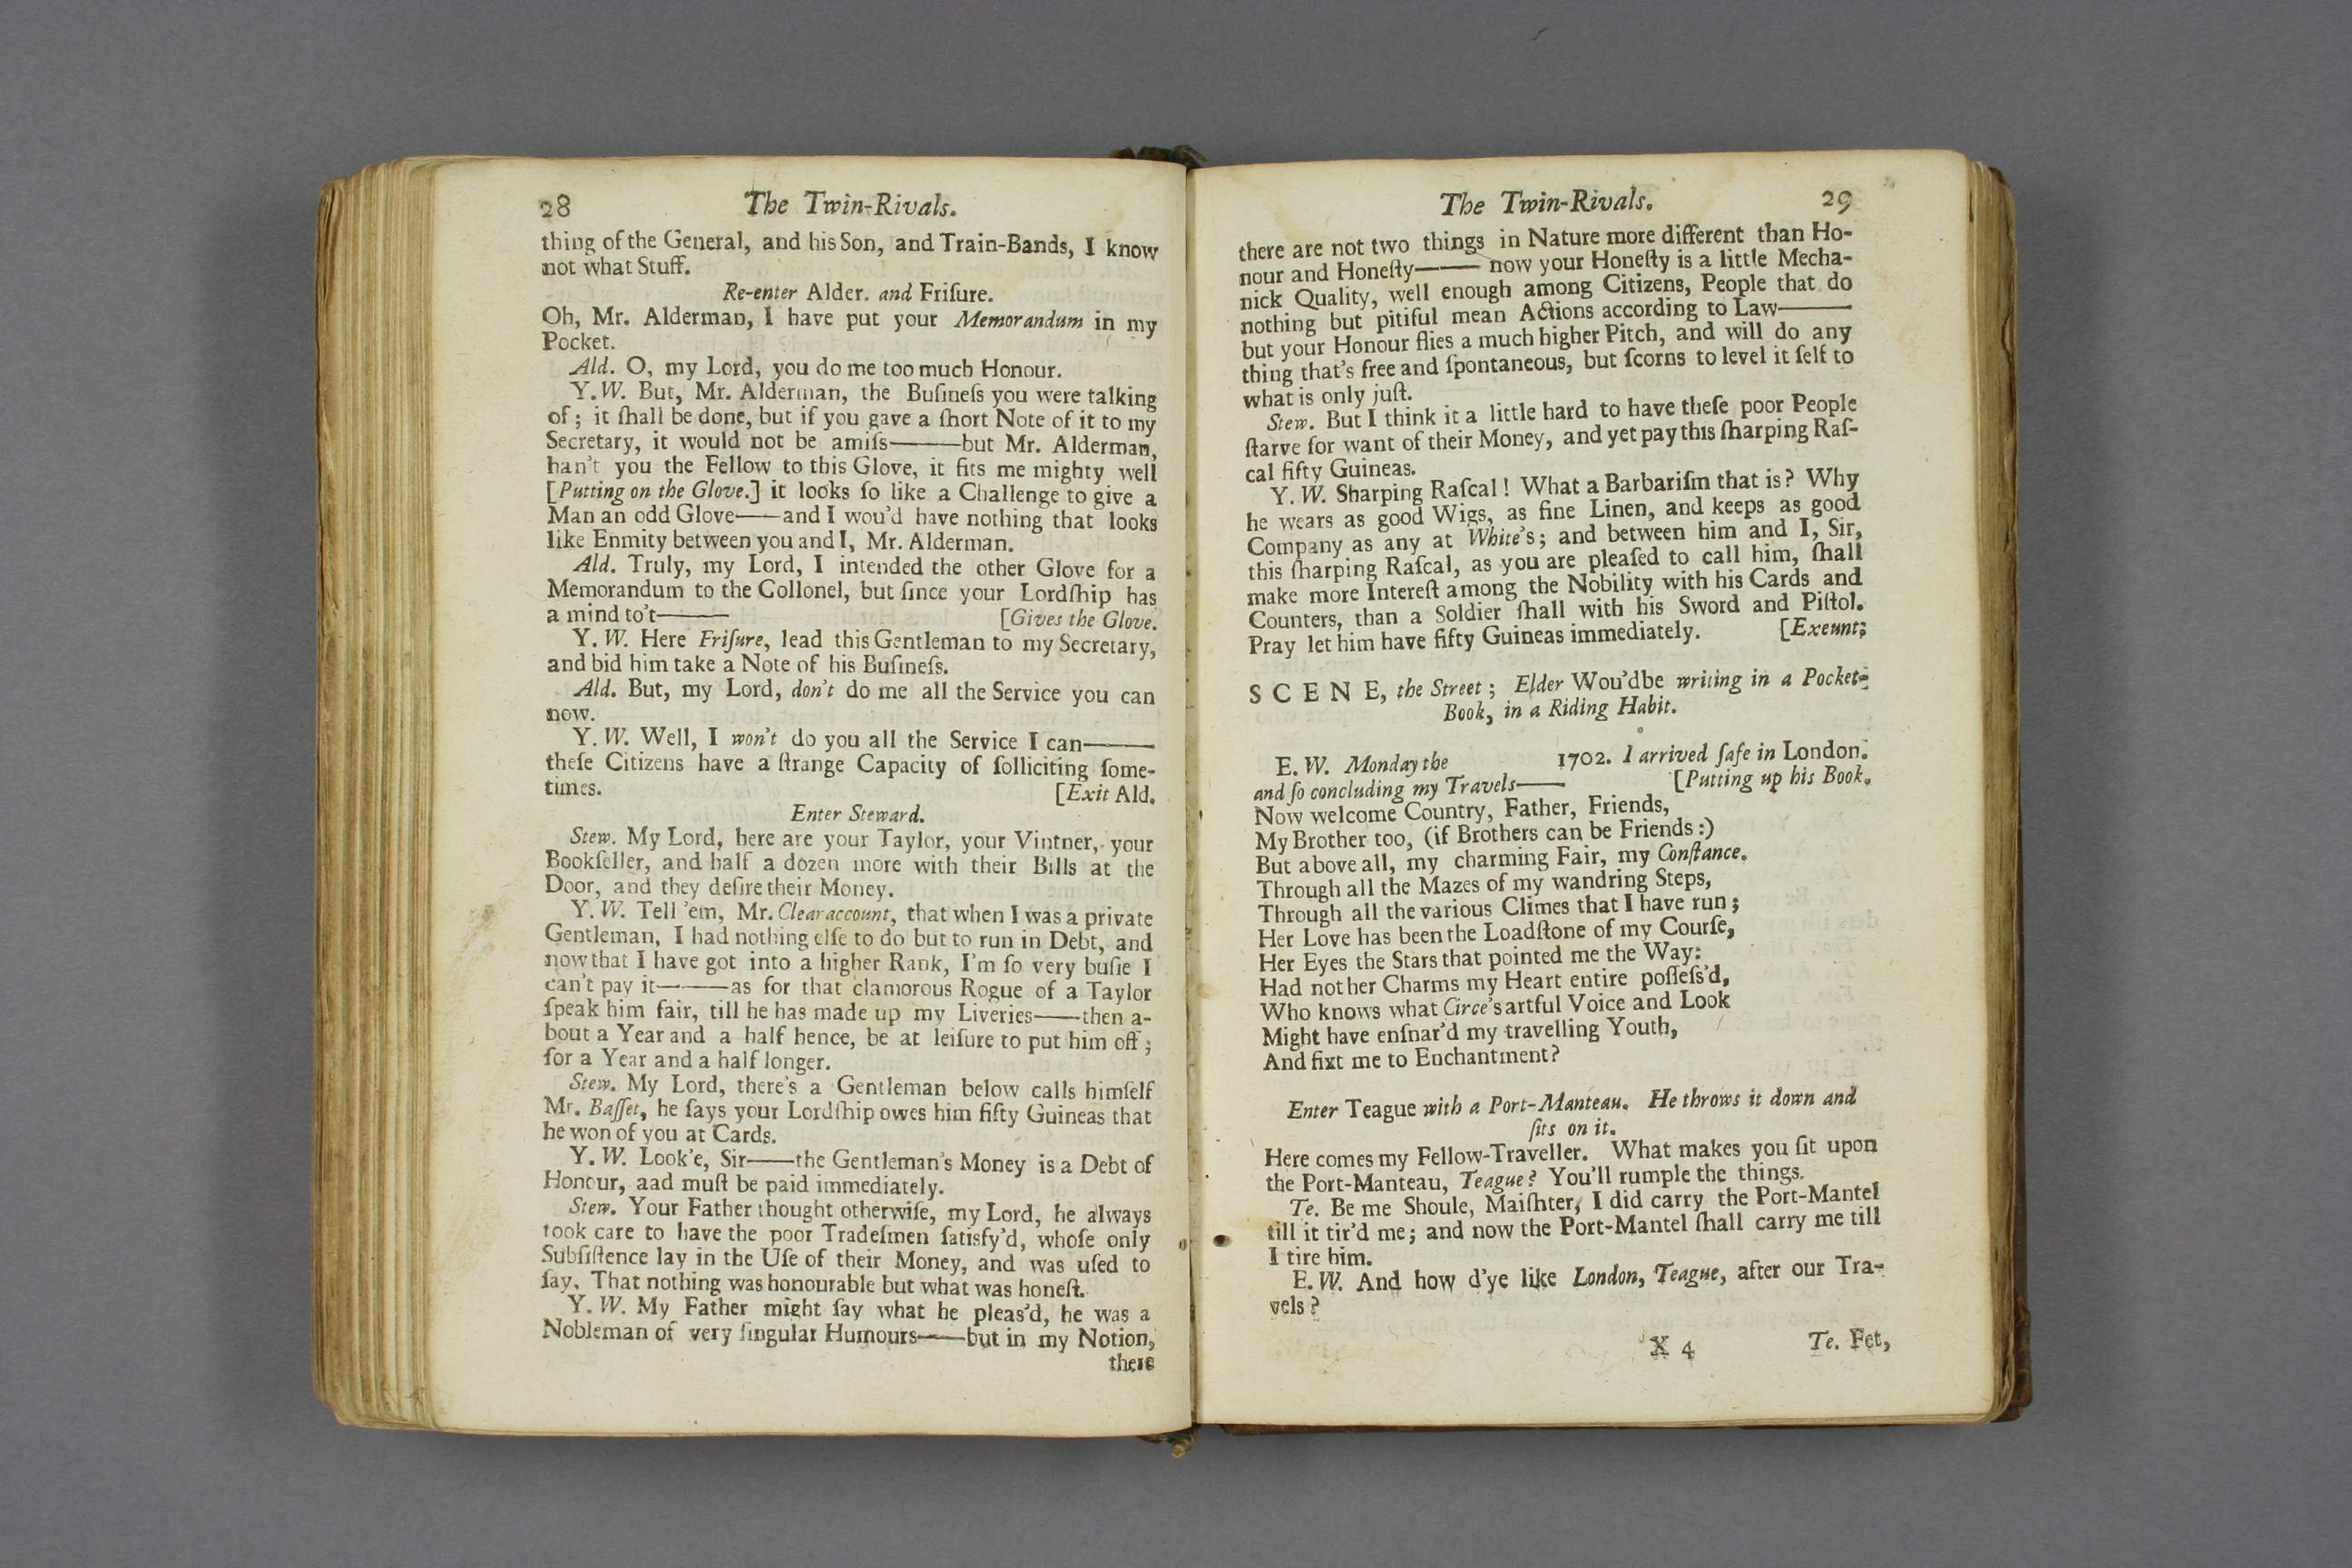 28 The Twin-Rivals.
thing of the General, and his Son, and Train-Bands, I know
not what Stuff.
Re-enter Alder. and Friſure.
Oh, Mr. Alderman, I have put your Memorandum in my
Pocket.
Ald. O, my Lord, you do me too much Honour.
Y. W. But, Mr. Alderman, the Buſineſs you were talking
of; it ſhall be done, but if you gave a ſhort Note of it to my
Secretary, it would not be amiſs——but Mr. Alderman,
han't you the Fellow to this Glove, it fits me mighty well
[Putting on the Glove.] it looks ſo like a Challenge to give a
Man an odd Glove——and I wou'd have nothing that looks
like Enmity between you and I, Mr. Alderman.
Ald. Truly, my Lord, I intended the other Glove for a
Memorandum to the Collonel, but ſince your Lordſhip has
a mind to't—— [Gives the Glove.
Y. W. Here Friſure, lead this Gentleman to my Secretary,
and bid him take a Note of his Buſineſs.
Ald. But, my Lord, don't do me all the Service you can
now.
Y. W. Well, I won't do you all the Service I can——
theſe Citizens have a ſtrange Capacity of ſolliciting ſome-
times. [Exit Ald.
Enter Steward.
Stew. My Lord, here are your Taylor, your Vintner, your
Bookſeller, and half a dozen more with their Bills at the
Door, and they deſire their Money.
Y. W. Tell 'em, Mr. Clearaccount, that when I was a private
Gentleman, I had nothing elſe to do but to run in Debt, and
now that I have got into a higher Rank, I'm ſo very buſie I
can't pay it——as for that clamorous Rogue of a Taylor
ſpeak him fair, till he has made up my Liveries——then a-
bout a Year and a half hence, be at leiſure to put him off;
for a Year and a half longer.
Stew. My Lord, there's a Gentleman below calls himſelf
Mr. Baſſet, he ſays your Lordſhip owes him fifty Guineas that
he won of you at Cards.
Y. W. Look'e, Sir——the Gentleman's Money is a Debt of
Honour, aad muſt be paid immediately.
Stew. Your Father thought otherwiſe, my Lord, he always
took care to have the poor Tradeſmen ſatisfy'd, whoſe only
Subſiſtence lay in the Uſe of their Money, and was uſed to
ſay, That nothing was honourable but what was honeſt.
Y. W. My Father might ſay what he pleas'd, he was a
Nobleman of very ſingular Humours——but in my Notion,
there
The Twin-Rivals. 29
there are not two things in Nature more different than Ho-
nour and Honeſty——now your Honeſty is a little Mecha-
nick Quality, well enough among Citizens, People that do
nothing but pitiful mean Actions according to Law——
but your Honour flies a much higher Pitch, and will do any
thing that's free and ſpontaneous, but ſcorns to level it ſelf to
what is only juſt.
Stew. But I think it a little hard to have theſe poor People
ſtarve for want of their Money, and yet pay this ſharping Raſ-
cal fifty Guineas.
Y. W. Sharping Raſcal! What a Barbariſm that is? Why
he wears as good Wigs, as fine Linen, and keeps as good
Company as any at White's; and between him and I, Sir,
this ſharping Raſcal, as you are pleaſed to call him, ſhall
make more Intereſt among the Nobility with his Cards and
Counters, than a Soldier ſhall with his Sword and Piſtol.
Pray let him have fifty Guineas immediately. [Exeunt;
SCENE, the Street; Elder Wou'dbe writing in a Pocket-
Book, in a Riding Habit.
E. W. Monday the 1702. I arrived ſafe in London.
and ſo concluding my Travels—— [Putting up his Book.
Now welcome Country, Father, Friends,
My Brother too, (if Brothers can be Friends:)
But above all, my charming Fair, my Conſtance.
Through all the Mazes of my wandring Steps,
Through all the various Climes that I have run;
Her Love has been the Loadſtone of my Courſe,
Her Eyes the Stars that pointed me the Way:
Had not her Charms my Heart entire poſſeſs'd,
Who knows what Circe's artful Voice and Look
Might have enſnar'd my travelling Youth,
And fixt me to Enchantment?
Enter Teague with a Port-Manteau. He throws it down and
ſits on it.
Here comes my Fellow-Traveller. What makes you ſit upon
the Port-Manteau, Teague? You'll rumple the things.
Te. Be me Shoule, Maiſhter, I did carry the Port-Mantel
till it tir'd me; and now the Port-Mantel ſhall carry me till
I tire him.
E. W. And how d'ye like London, Teague, after our Tra-
vels?
X 4 Te. Fet,